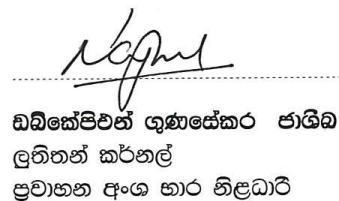 ඩබ්කේපීඑන් ගුණසේකර ජාශිබ
ලුතිතන් කර්නල්
ප්‍රවාහන අංශ භාර නිළධාරී